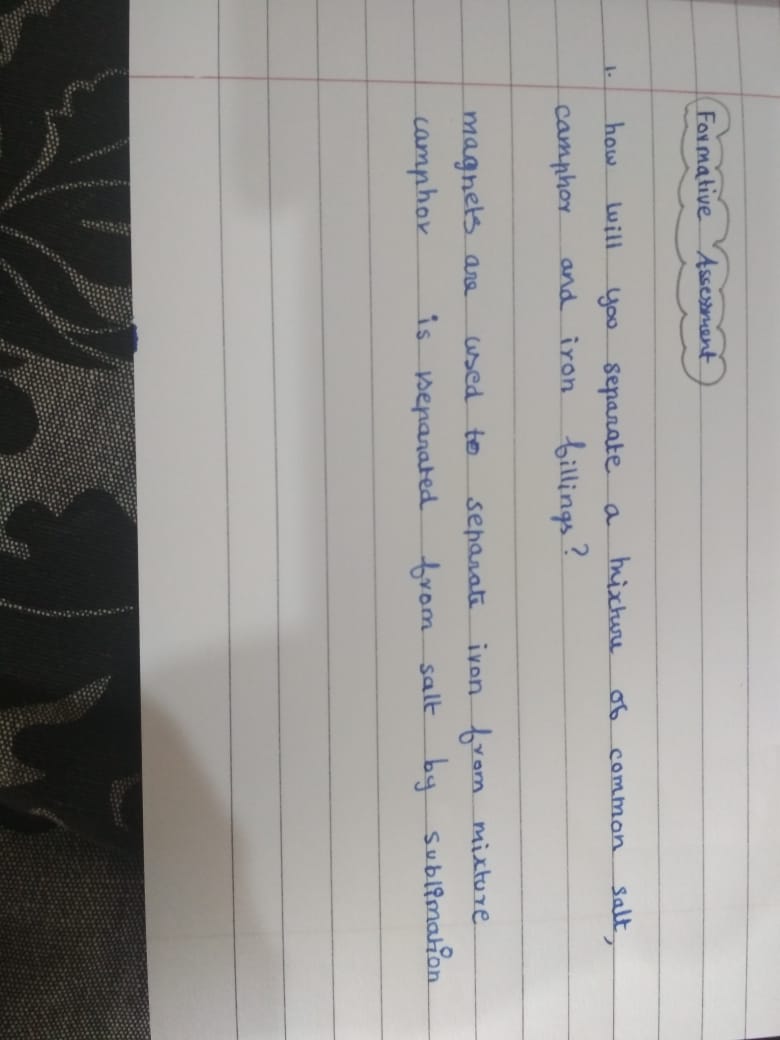 Formative Assessment
1. how will you separate a mixture of common salt,
camphor and iron fillings?
magnets are used to separate iron from mixture
camphor is separated from salt by sublimation